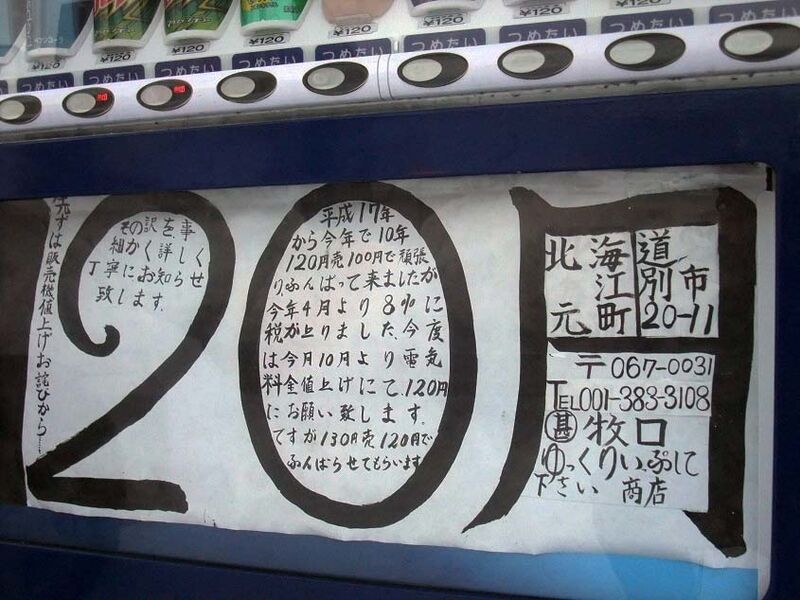 ¥120 ¥120 ¥120 ¥120 ¥120 ¥120
つめたい つめたい つめたい つめたい つめたい つめたい つめたい つめたい
先ずは販売機値上げお詫びから……
20円
その訳を事
細かく詳しく
丁寧にお知らせ
致します.
平成17年
から今年で10年
120円売100円で頑張
りふんばって来ましたが
今年4月より8%に
税が上りました、今度
は今月10月より電気
料金値上げにて、120円
にお願い致します.
ですが130円売120円で
ふんばらせてもらいます
北海道
江別市
元町20-11
〒067-0031
TEL001-383-3108
甚 牧口
ゆっくりい.ぷして
下さい 商店